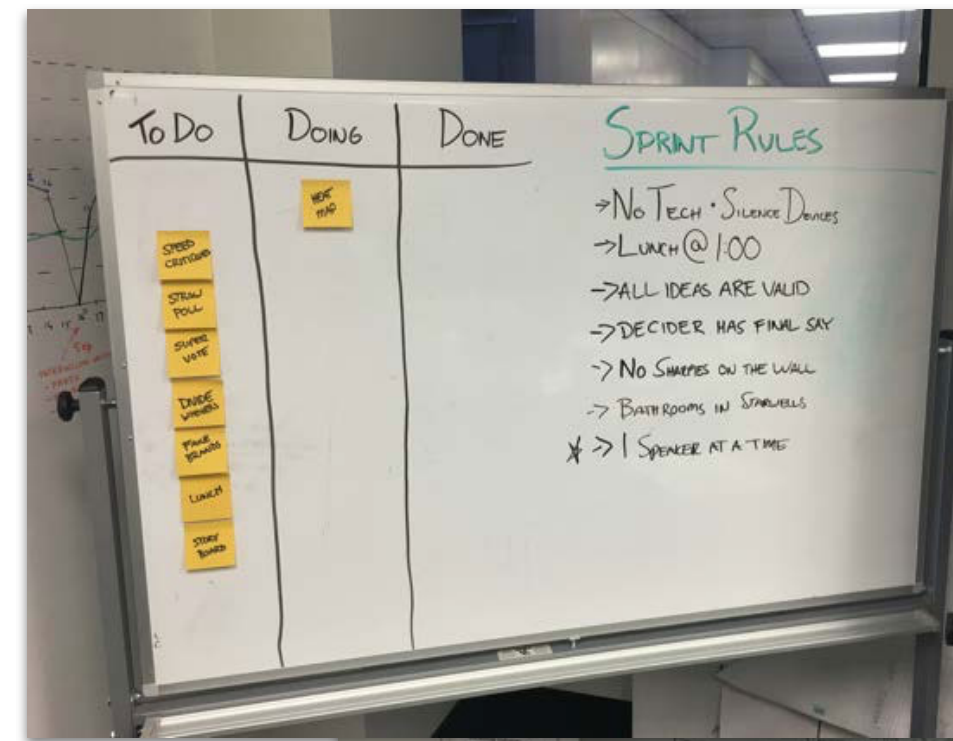 TO DO
DOING
DONE
HEAT
MAP
SPEED
CRITIQUES
STRAW
POLL
SUPER
VOTE
DIVIDE
WINNERS
FAKE
BRANDS
LUNCH
STORY
BOARD
SPRINT RULES
→ NO TECH · SILENCE DEVICES
→ LUNCH @ 1:00
→ ALL IDEAS ARE VALID
→ DECIDER HAS FINAL SAY
→ NO SHARPIES ON THE WALL
→ BATHROOMS IN STAIRWELLS
* → 1 SPEAKER AT A TIME